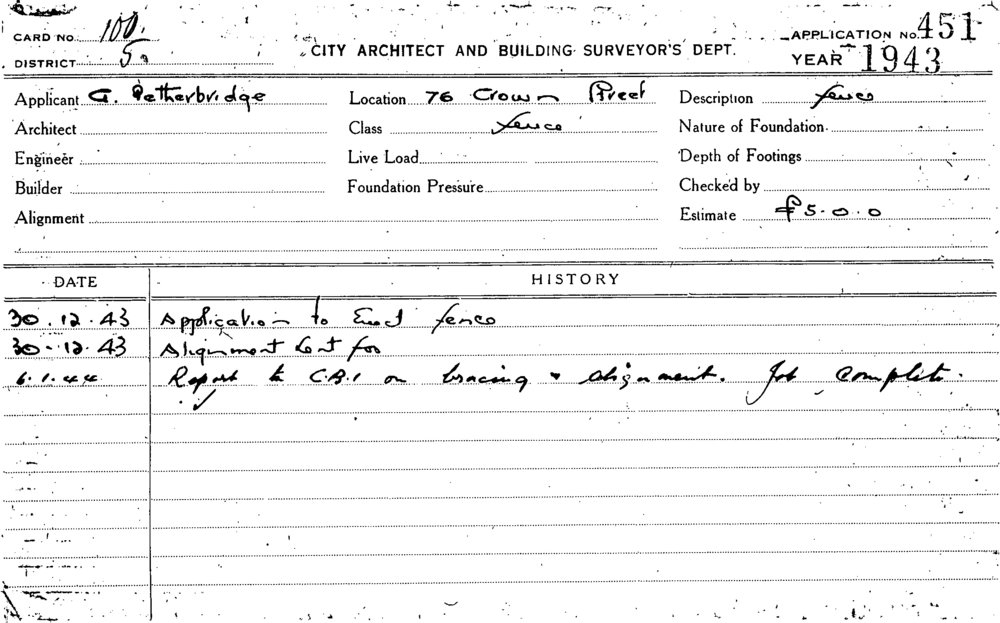 CARD No. 100. CITY ARCHITECT AND BUILDING SURVEYOR'S DEPT. APPLICATION No. 451
DISTRICT 5 YEAR 1943
Applicant G. Petherbridge Location 76 Crown Street Description fence
Architect Class fence Nature of Foundation
Engineer Live Load Depth of Footings
Builder Foundation Pressure Checked by
Alignment Estimate £5.0.0
DATE HISTORY
30.12.43 Application to Erect fence
30.12.43 Alignment sent for
6.1.44 Report to C.B.I on bracing & alignment. Job complete.